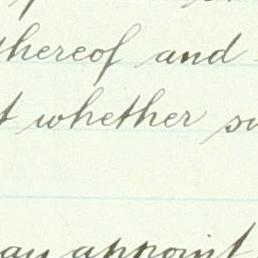 thereof and
whether
appoint